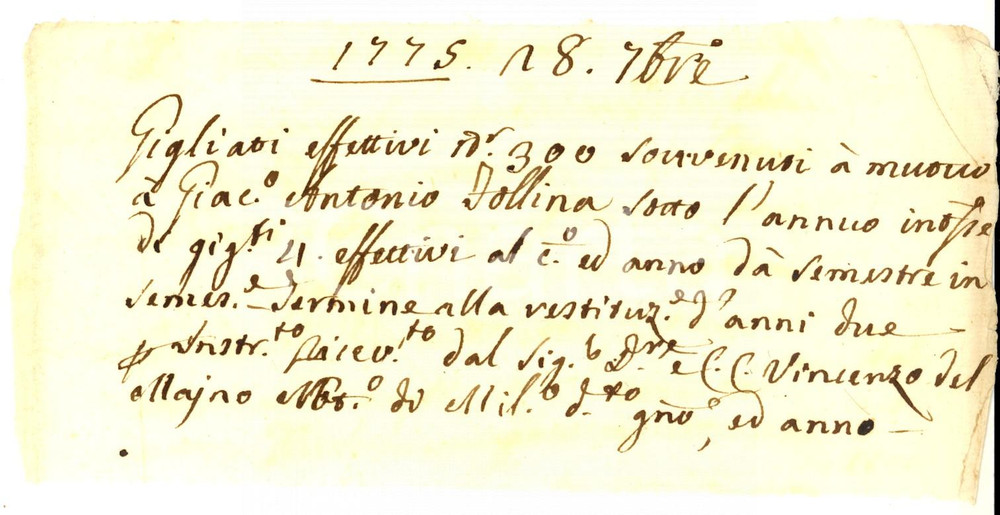 1775. 28. 7bre
Gigliati effettivi nr. 300 sovvenuti à mutuo
à Giac.o Antonio Tollina sotto l'annuo intsse
di gig.ti 4. effettivi al c.o ed anno dà semestre in
semes.e Termine alla restituz.e d'anni due
p Instr.to ricev.to dal Sig.r D.re e C. C. Vincenzo del
Majno Not.o di Mil.o d.to gno, ed anno